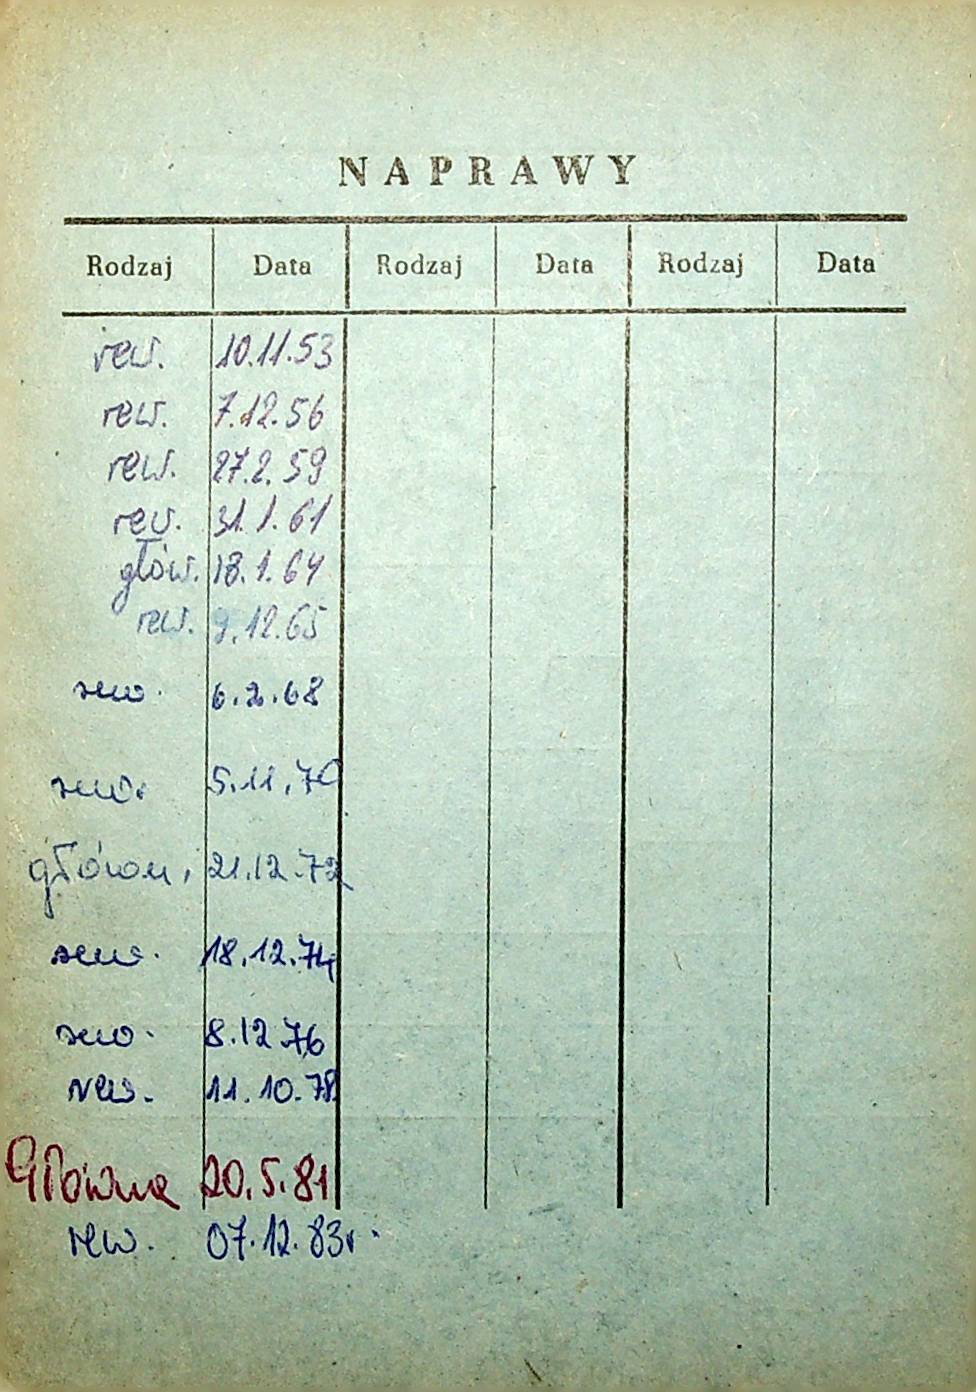 NAPRAWY
Rodzaj Data Rodzaj Data Rodzaj Data
rew. 10.11.53
rew. 7.12.56
rew. 27.2.59
rew. 31.1.61
głów. 18.1.64
rew. 9.12.65
rew. 6.2.68
rew. 5.11.70
główn. 21.12.72
rew. 18.12.74
rew. 8.12.76
rew. 11.10.78
Główna 20.5.81
rew. 07.12.83r.